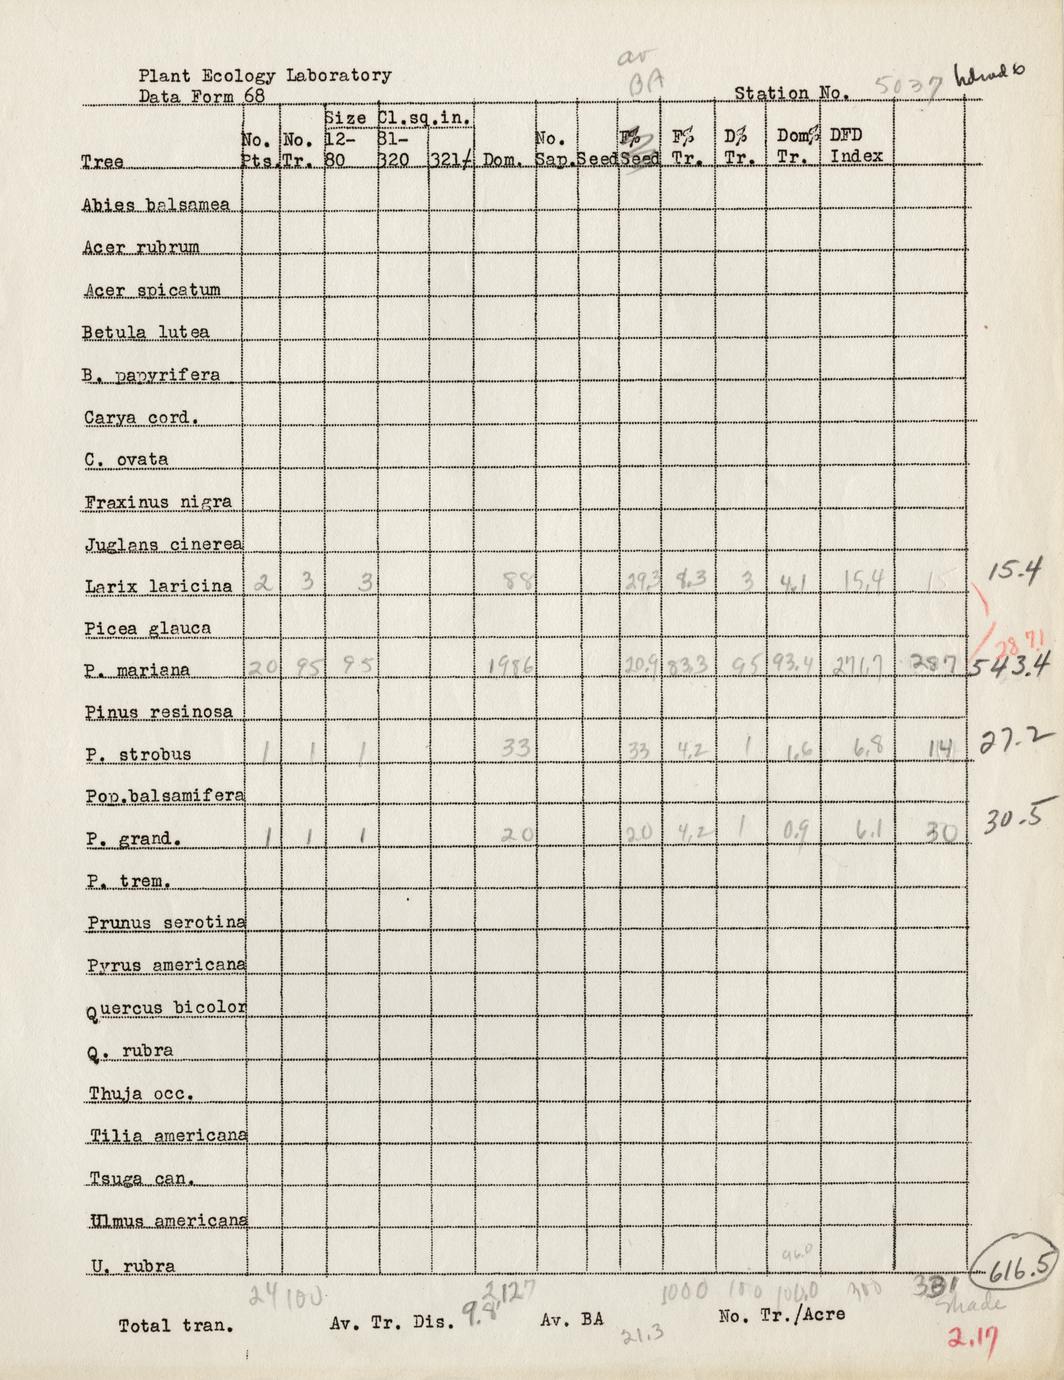 av
Plant Ecology Laboratory
BA
Data Form 68 Station No. 5037
Size Cl.sq.in.
No. No. 12- 81- No. F% F% D% Dom% DFD
Tree Pts. Tr. 80 320 321/ Dom. Sap. Seed Seed Tr. Tr. Tr. Index
Abies balsamea
Acer rubrum
Acer spicatum
Betula lutea
B. papyrifera
Carya cord.
C. ovata
Fraxinus nigra
Juglans cinerea
Larix laricina 2 3 3 88 29.3 8.3 3 4.1 15.4 15 15.4
Picea glauca
28 71
P. mariana 20 95 95 1986 20.9 83.3 95 93.4 271.7 287 543.4
Pinus resinosa
P. strobus 1 1 1 33 33 4.2 1 1.6 6.8 114 27.2
Pop.balsamifera
P. grand. 1 1 1 20 20 4.2 1 0.9 6.1 30 30.5
P. trem.
Prunus serotina
Pyrus americana
Quercus bicolor
Q. rubra
Thuja occ.
Tilia americana
Tsuga can.
Ulmus americana
U. rubra 616.5
24 100 2127 1000 100 100.0 300 331
Total tran. Av. Tr. Dis. 9.8' Av. BA 21.3 No. Tr./Acre
shade
2.17